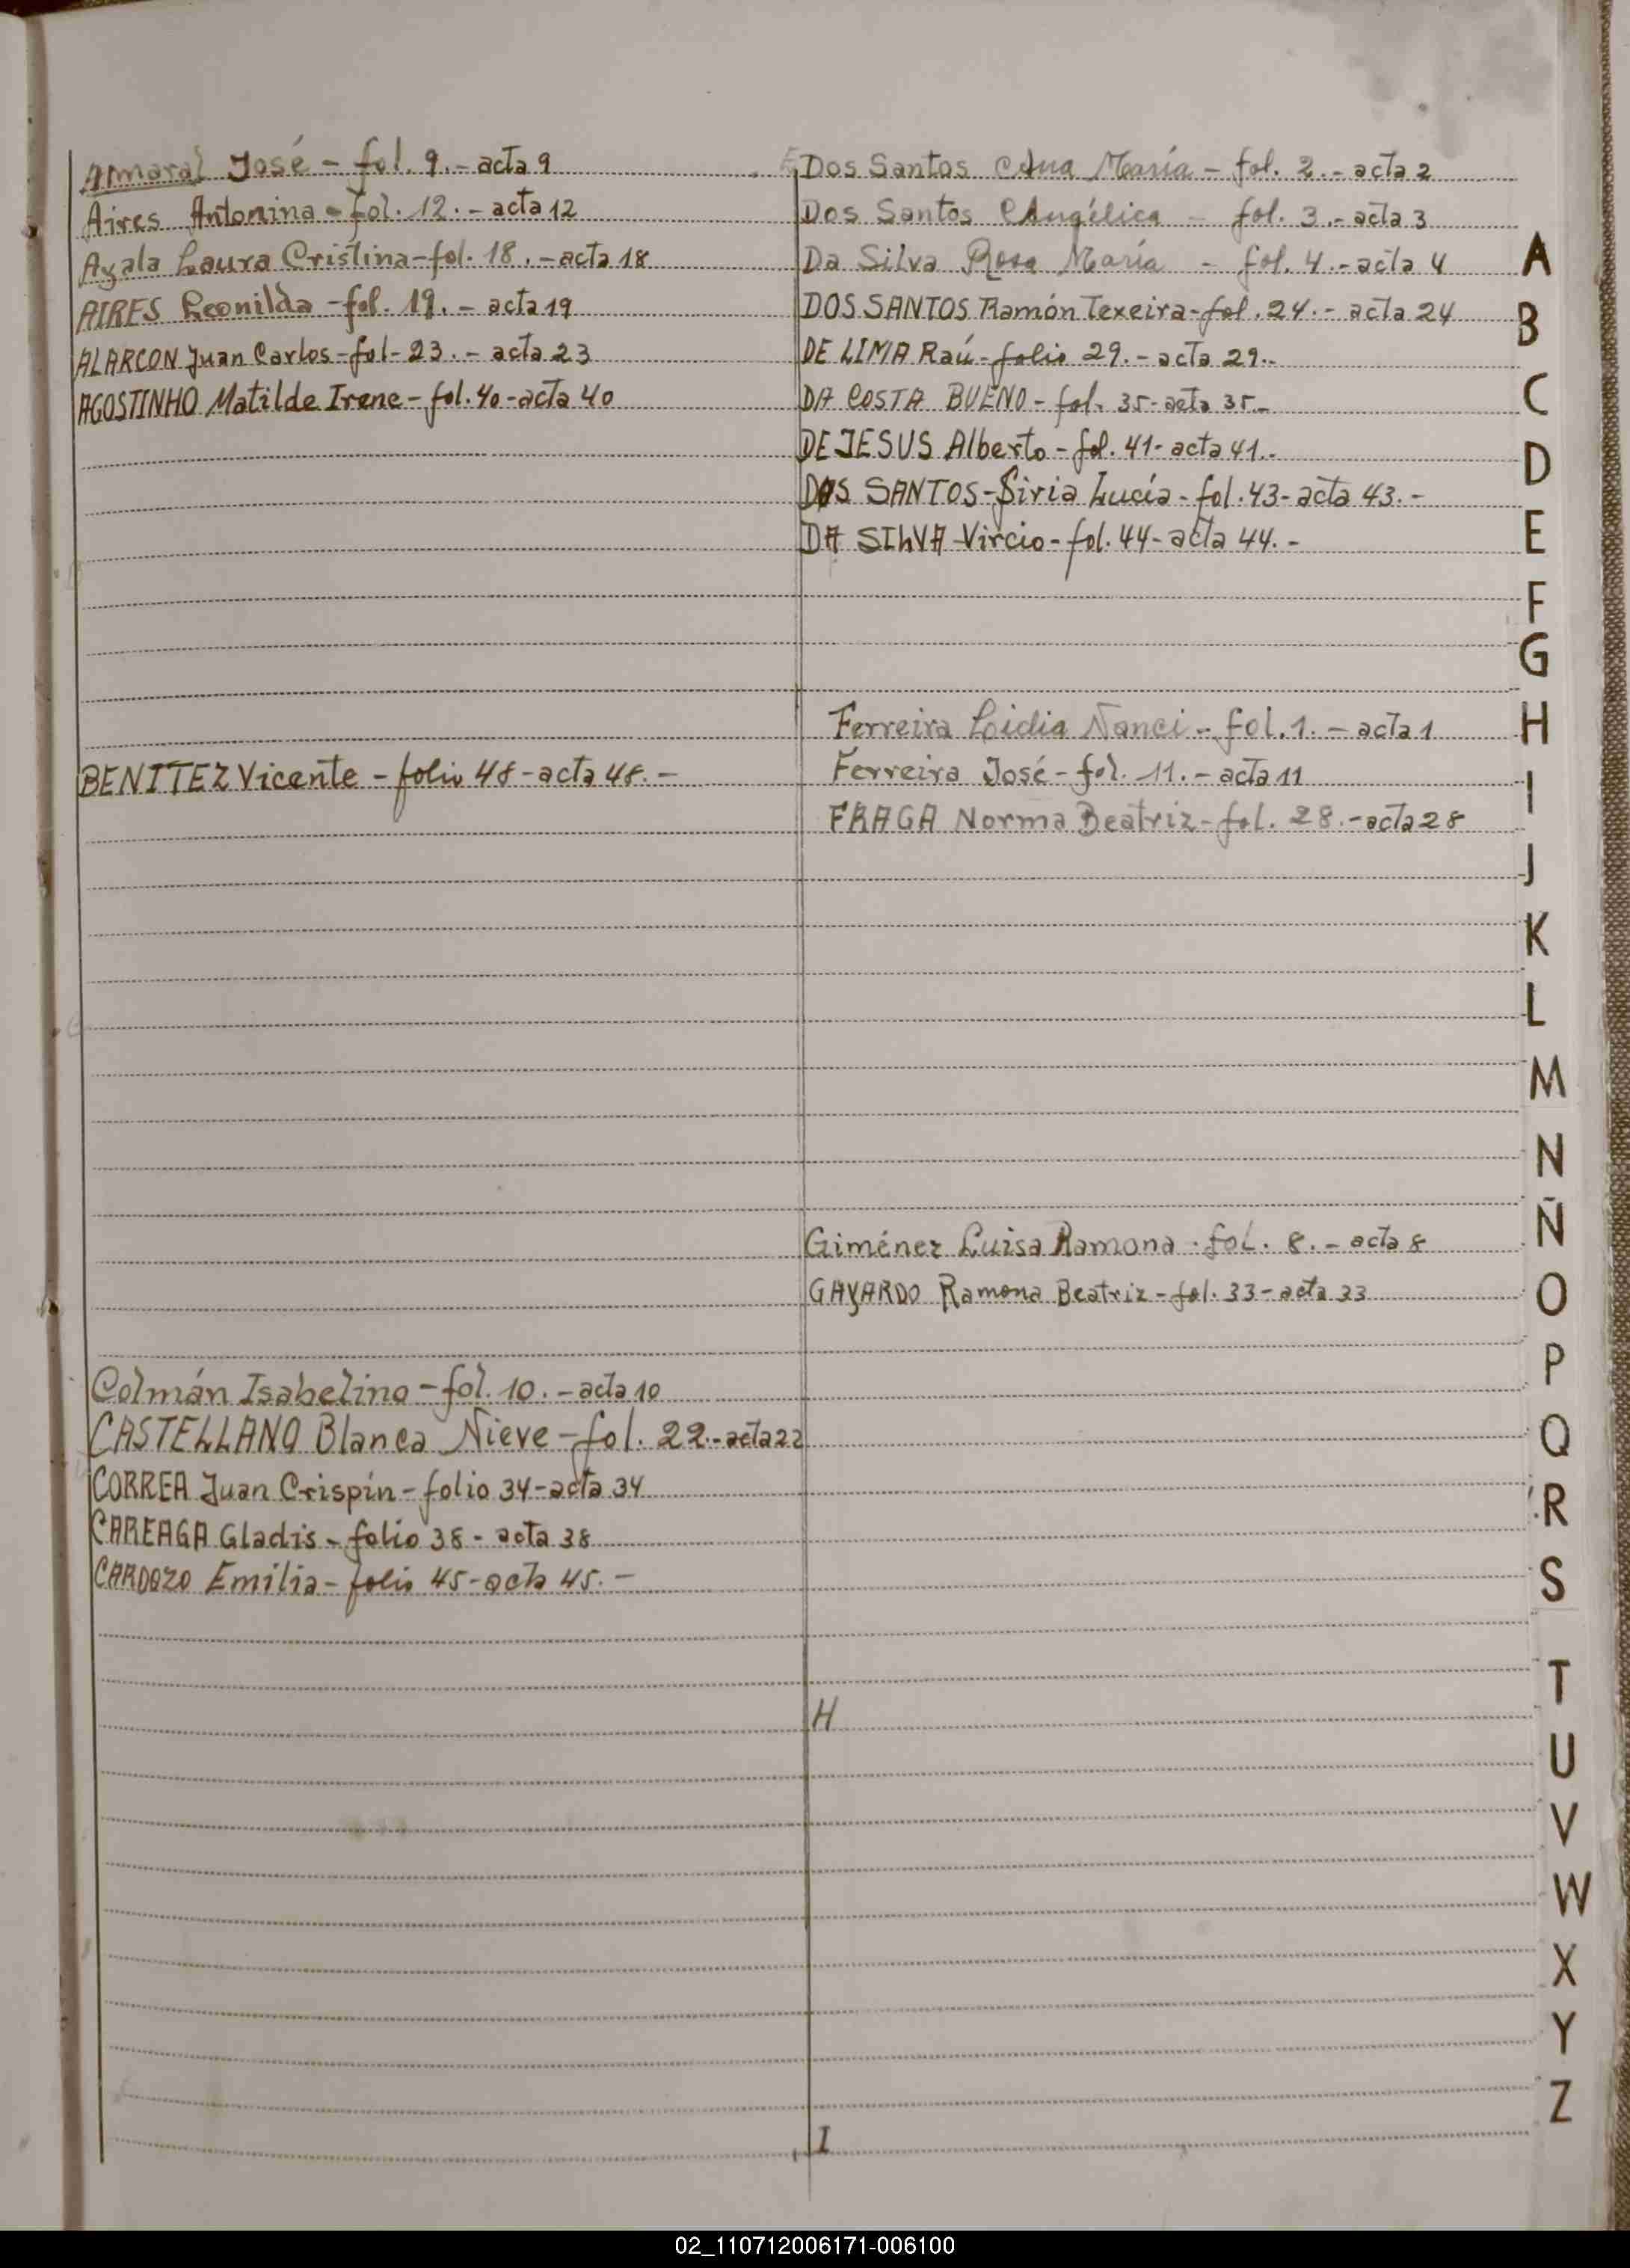 Amaral José - fol. 9.- acta 9
Aires Antonina - fol. 12.- acta 12
Ayala Laura Cristina - fol. 18.- acta 18
AIRES Leonilda - fol. 19.- acta 19
ALARCON Juan Carlos - fol - 23.- acta 23
AGOSTINHO Matilde Irene - fol. 40 - acta 40
BENITEZ Vicente - folio 48 - acta 48.-
Colmán Isabelino - fol. 10.- acta 10
CASTELLANO Blanca Nieve - fol. 22.- acta 22
CORREA Juan Crispín - folio 34 - acta 34
CAREAGA Gladis - folio 38 - acta 38
CARDOZO Emilia - folio 45 - acta 45.-
Dos Santos Ana María - fol. 2.- acta 2
Dos Santos Angélica - fol. 3.- acta 3
Da Silva Rosa María - fol. 4.- acta 4
DOS SANTOS Ramón Texeira - fol. 24.- acta 24
DE LIMA Raú - folio 29.- acta 29.-
DA COSTA BUENO - fol. 35 - acta 35.-
DE JESUS Alberto - fol. 41 - acta 41.-
DOS SANTOS - Siria Lucía - fol. 43 - acta 43.-
DA SILVA Vircio - fol. 44 - acta 44.-
Ferreira Lidia Nanci - fol. 1.- acta 1
Ferreira José - fol. 11.- acta 11
FRAGA Norma Beatriz - fol. 28.- acta 28
Giménez Luisa Ramona - fol. 8.- acta 8
GAYARDO Ramona Beatriz - fol. 33 - acta 33
H
I
A
B
C
D
E
F
G
H
I
J
K
L
M
N
Ñ
O
P
Q
R
S
T
U
V
W
X
Y
Z
02_110712006171-006100